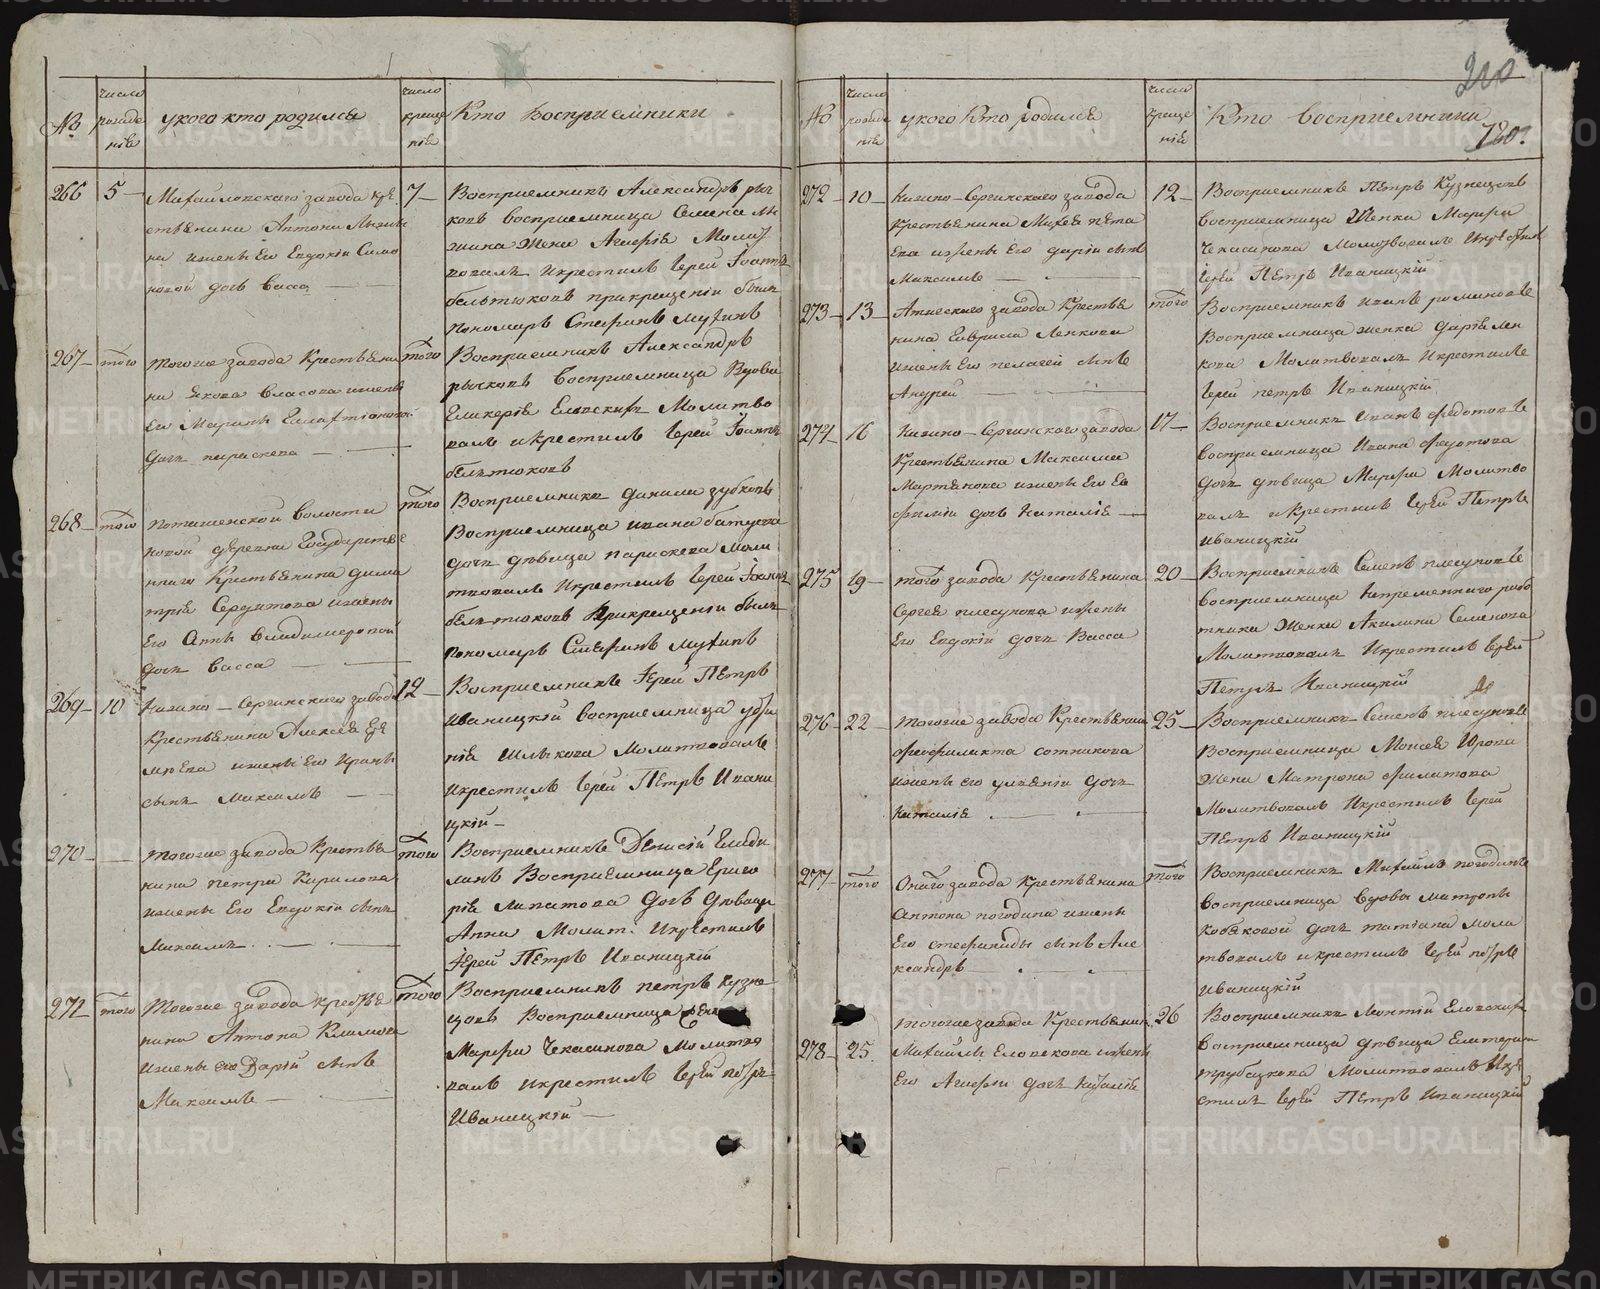 №
число рожде нія
у кого кто родился
число креще нія
Кто Восприемники
266
5
Михайловскаго завода кре
стьянина Антона
на и жены Его Евдокіи Симо
новой дочь Васса
7
Восприемникъ Александръ рыч
ковъ восприемница Семена
жена Агафія Молит
вовалъ и крестилъ Іерей Іоаннъ
бельтюковъ при крещеніи былъ
Пономарь Стефанъ Мухинъ
267
того
тогоже завода Крестьяни
на Якова Власова и жены
Его Марины
дочь параскева
того
Восприемникъ Александръ
рычковъ Восприемница Вдова
Гликерія Еловскихъ Молитво
валъ и крестилъ Іерей Іоаннъ
бельтюковъ
268
того
поташенской волости
новой деревни Государстве
ннаго Крестьянина дими
трія и жены
Его Анны Владимеровой
дочь Васса
того
Восприемникъ данила зубковъ
Восприемница ивана батуева
дочь девица параскева Моли
твовалъ и крестилъ Іерей Іоаннъ
бельтюковъ При крещеніи былъ
пономарь Стефанъ Мухинъ
269
10
Нязино-Сергинскаго завода
Крестьянина Алексея
и жены Его Ирины
сынъ Максимъ
12
Восприемникъ Іерей Петръ
Иваницкій восприемница
Шлыкова Молитвовалъ
и крестилъ Іерей Петръ Ивани
цкій
270
тогоже завода Крестья
нина петра Кирилова
и жены Его Евдокіи сынъ
Максимъ
того
Восприемникъ Денисій
Восприемница Григо
рія Липатова дочь девица
Анна Молит. и крестилъ
Іерей Петръ Иваницкій
271
того
тогоже завода крестья
нина Антона Климова
и жены его Дарьи сынъ
Максимъ
того
Восприемникъ петръ кузне
цовъ Восприемница
Марфа Чекасинова Молитво
валъ и крестилъ Іерей петръ
Иваницкій
210
180.
№
число рожде нія
у кого Кто родился
число креще нія
Кто восприемники
272
10
Нязино-Сергинскаго завода
Крестьянина Михея
и жены Его дарьи сынъ
Максимъ
12
Восприемникъ Петръ Кузнецовъ
восприемница Женка Марфа
Чекасинова Молитвовалъ и крестилъ
Іерей Петръ Иваницкій
273
13
Атигскаго завода Крестья
нина Гаврила Ленкова
и жены Его пелагеи сынъ
Андрей
того
Восприемникъ иванъ романовъ
Восприемница женка дарья лен
кова Молитвовалъ и крестилъ
Іерей петръ Иваницкій
274
16
Нязино-Сергинскаго завода
Крестьянина Максима
Мартьянова и жены Его Ев
фиміи дочь Наталія
17
Восприемникъ Иванъ федотовъ
восприемница Ивана федотова
дочь девица Марфа Молитво
валъ и крестилъ Іерей Петръ
Иваницкій
275
19
того завода Крестьянина
Сергея плесунова и жены
Его Евдокіи дочь Васса
20
Восприемникъ Семенъ плесуновъ
восприемница Непременнаго рабо
тника Женка Акилина Семенова
Молитвовалъ и крестилъ Іерей
Петръ Иваницкій
276
22
тогоже завода Крестьянина
феофилакта сотникова
и жены его дочь
Наталія
25
Восприемникъ Семенъ плесуновъ
Восприемница Моисея Юрова
Жена Матрона Филатова
Молитвовалъ и крестилъ Іерей
Петръ Иваницкій
277
того
Онаго завода Крестьянина
Антона погодина и жены
Его стефаниды сынъ Але
ксандръ
того
Восприемникъ Михайлъ погодинъ
восприемница вдовы матроны
кобяковой дочь татіана моли
твовалъ и крестилъ Іерей петръ
Иваницкій
278
25.
тогоже завода Крестьянина
Михайлы Еловскова и жены
Его Агафьи дочь Наталія
26
Восприемникъ Леонтій Еловскихъ
восприемница девица Екатерина
трубецкова Молитвовалъ и кре
стилъ Іерей Петръ Иваницкій
METRIKI.GASO-URAL.RU